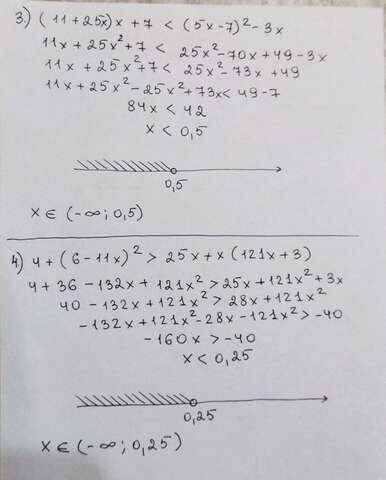 3.) (11+25x)x + 7 < (5x-7)² - 3x
11x + 25x² + 7 < 25x² - 70x + 49 - 3x
11x + 25x² + 7 < 25x² - 73x + 49
11x + 25x² - 25x² + 73x < 49 - 7
84x < 42
x < 0,5
0,5
x ∈ (-∞; 0,5)
4.) 4 + (6-11x)² > 25x + x(121x+3)
4 + 36 - 132x + 121x² > 25x + 121x² + 3x
40 - 132x + 121x² > 28x + 121x²
-132x + 121x² - 28x - 121x² > -40
-160x > -40
x < 0,25
0,25
x ∈ (-∞; 0,25)